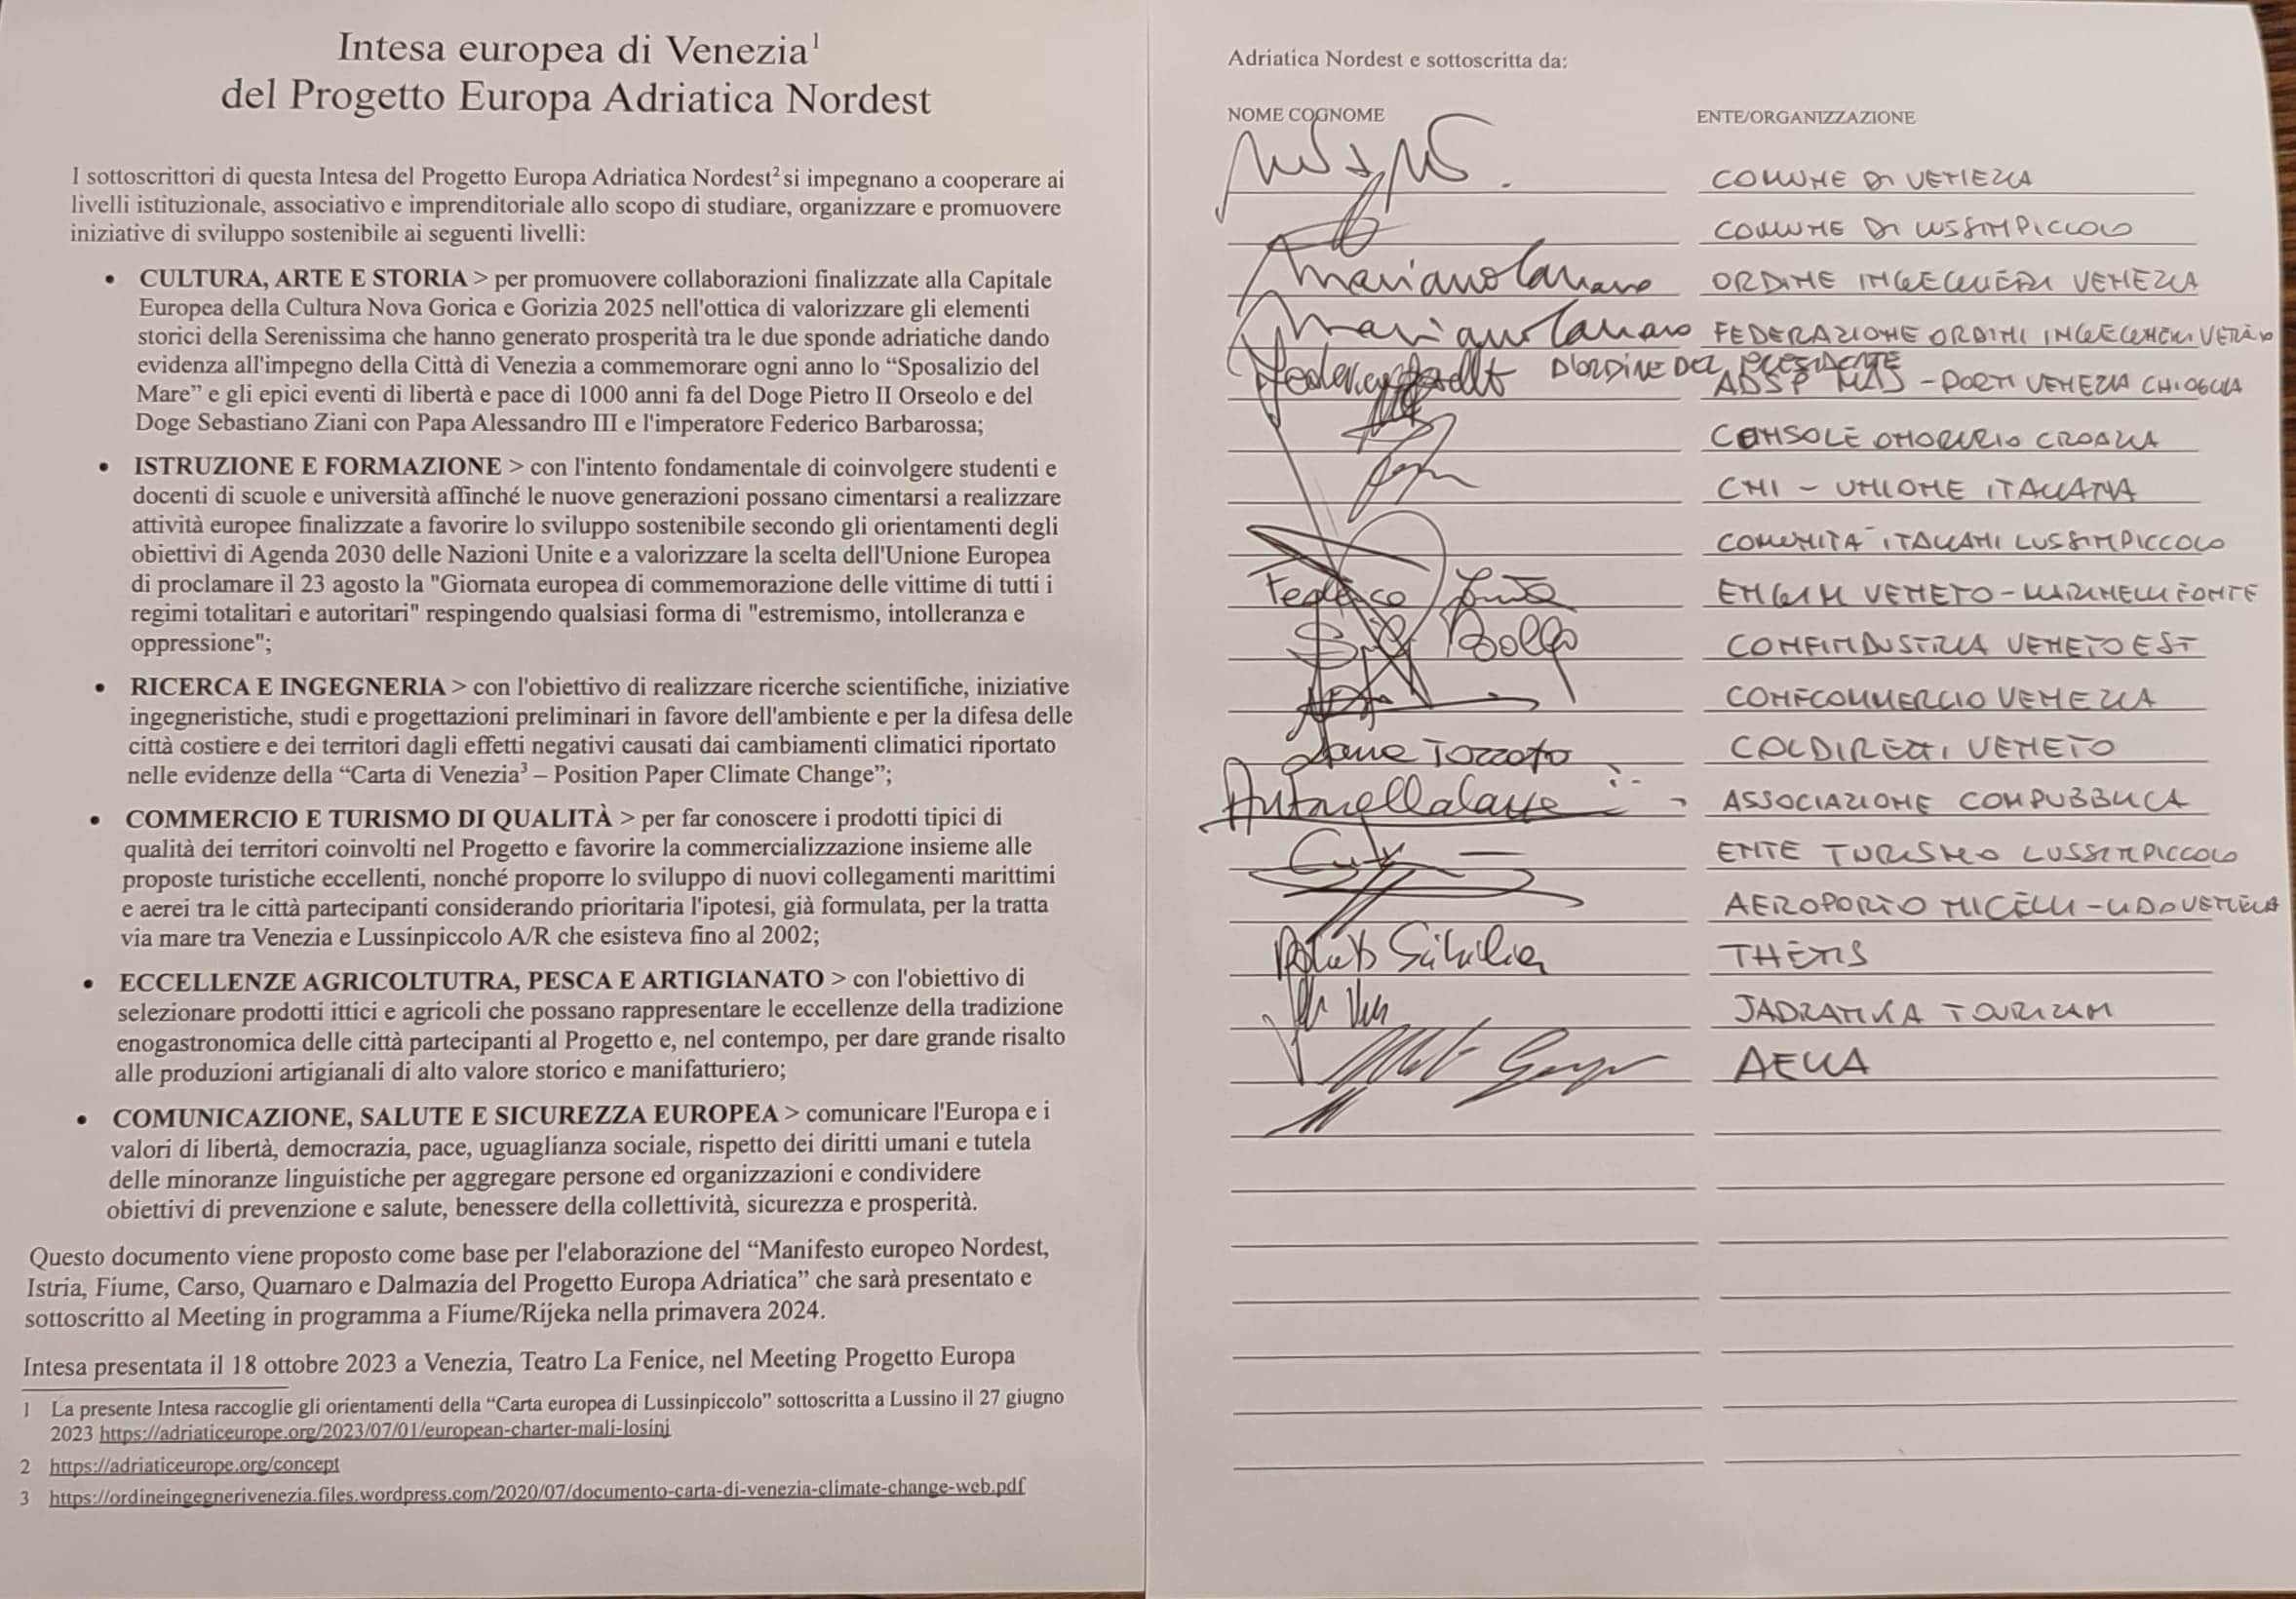 Intesa europea di Venezia¹
del Progetto Europa Adriatica Nordest
I sottoscrittori di questa Intesa del Progetto Europa Adriatica Nordest² si impegnano a cooperare ai
livelli istituzionale, associativo e imprenditoriale allo scopo di studiare, organizzare e promuovere
iniziative di sviluppo sostenibile ai seguenti livelli:
• CULTURA, ARTE E STORIA > per promuovere collaborazioni finalizzate alla Capitale
Europea della Cultura Nova Gorica e Gorizia 2025 nell'ottica di valorizzare gli elementi
storici della Serenissima che hanno generato prosperità tra le due sponde adriatiche dando
evidenza all'impegno della Città di Venezia a commemorare ogni anno lo “Sposalizio del
Mare” e gli epici eventi di libertà e pace di 1000 anni fa del Doge Pietro II Orseolo e del
Doge Sebastiano Ziani con Papa Alessandro III e l'imperatore Federico Barbarossa;
• ISTRUZIONE E FORMAZIONE > con l'intento fondamentale di coinvolgere studenti e
docenti di scuole e università affinché le nuove generazioni possano cimentarsi a realizzare
attività europee finalizzate a favorire lo sviluppo sostenibile secondo gli orientamenti degli
obiettivi di Agenda 2030 delle Nazioni Unite e a valorizzare la scelta dell'Unione Europea
di proclamare il 23 agosto la "Giornata europea di commemorazione delle vittime di tutti i
regimi totalitari e autoritari" respingendo qualsiasi forma di "estremismo, intolleranza e
oppressione";
• RICERCA E INGEGNERIA > con l'obiettivo di realizzare ricerche scientifiche, iniziative
ingegneristiche, studi e progettazioni preliminari in favore dell'ambiente e per la difesa delle
città costiere e dei territori dagli effetti negativi causati dai cambiamenti climatici riportato
nelle evidenze della “Carta di Venezia³ – Position Paper Climate Change”;
• COMMERCIO E TURISMO DI QUALITÀ > per far conoscere i prodotti tipici di
qualità dei territori coinvolti nel Progetto e favorire la commercializzazione insieme alle
proposte turistiche eccellenti, nonché proporre lo sviluppo di nuovi collegamenti marittimi
e aerei tra le città partecipanti considerando prioritaria l'ipotesi, già formulata, per la tratta
via mare tra Venezia e Lussinpiccolo A/R che esisteva fino al 2002;
• ECCELLENZE AGRICOLTUTRA, PESCA E ARTIGIANATO > con l'obiettivo di
selezionare prodotti ittici e agricoli che possano rappresentare le eccellenze della tradizione
enogastronomica delle città partecipanti al Progetto e, nel contempo, per dare grande risalto
alle produzioni artigianali di alto valore storico e manifatturiero;
• COMUNICAZIONE, SALUTE E SICUREZZA EUROPEA > comunicare l'Europa e i
valori di libertà, democrazia, pace, uguaglianza sociale, rispetto dei diritti umani e tutela
delle minoranze linguistiche per aggregare persone ed organizzazioni e condividere
obiettivi di prevenzione e salute, benessere della collettività, sicurezza e prosperità.
Questo documento viene proposto come base per l'elaborazione del “Manifesto europeo Nordest,
Istria, Fiume, Carso, Quarnaro e Dalmazia del Progetto Europa Adriatica” che sarà presentato e
sottoscritto al Meeting in programma a Fiume/Rijeka nella primavera 2024.
Intesa presentata il 18 ottobre 2023 a Venezia, Teatro La Fenice, nel Meeting Progetto Europa
1 La presente Intesa raccoglie gli orientamenti della “Carta europea di Lussinpiccolo” sottoscritta a Lussino il 27 giugno
2023 https://adriaticeurope.org/2023/07/01/european-charter-mali-losinj
2 https://adriaticeurope.org/concept
3 https://ordineingegnerivenezia.files.wordpress.com/2020/07/documento-carta-di-venezia-climate-change-web.pdf
Adriatica Nordest e sottoscritta da:
NOME COGNOME ENTE/ORGANIZZAZIONE
COMUNE DI VENEZIA
COMUNE DI LUSSINPICCOLO
Mariano Carraro ORDINE INGEGNERI VENEZIA
Mariano Carraro FEDERAZIONE ORDINI INGEGNERI VENETO
D'ORDINE DEL PRESIDENTE
ADSP MAS - PORTI VENEZIA CHIOGGIA
CONSOLE ONORARIO CROAZIA
CNI - UNIONE ITALIANA
COMUNITÀ ITALIANI LUSSINPICCOLO
ENGIM VENETO - MARINELLI FONTE
CONFINDUSTRIA VENETO EST
CONFCOMMERCIO VENEZIA
Tozzato COLDIRETTI VENETO
Antonella ASSOCIAZIONE COMPUBBLICA
ENTE TURISMO LUSSINPICCOLO
AEROPORTO NICELLI - LIDO VENEZIA
THETIS
JADRANKA TOURIZAM
AELIA